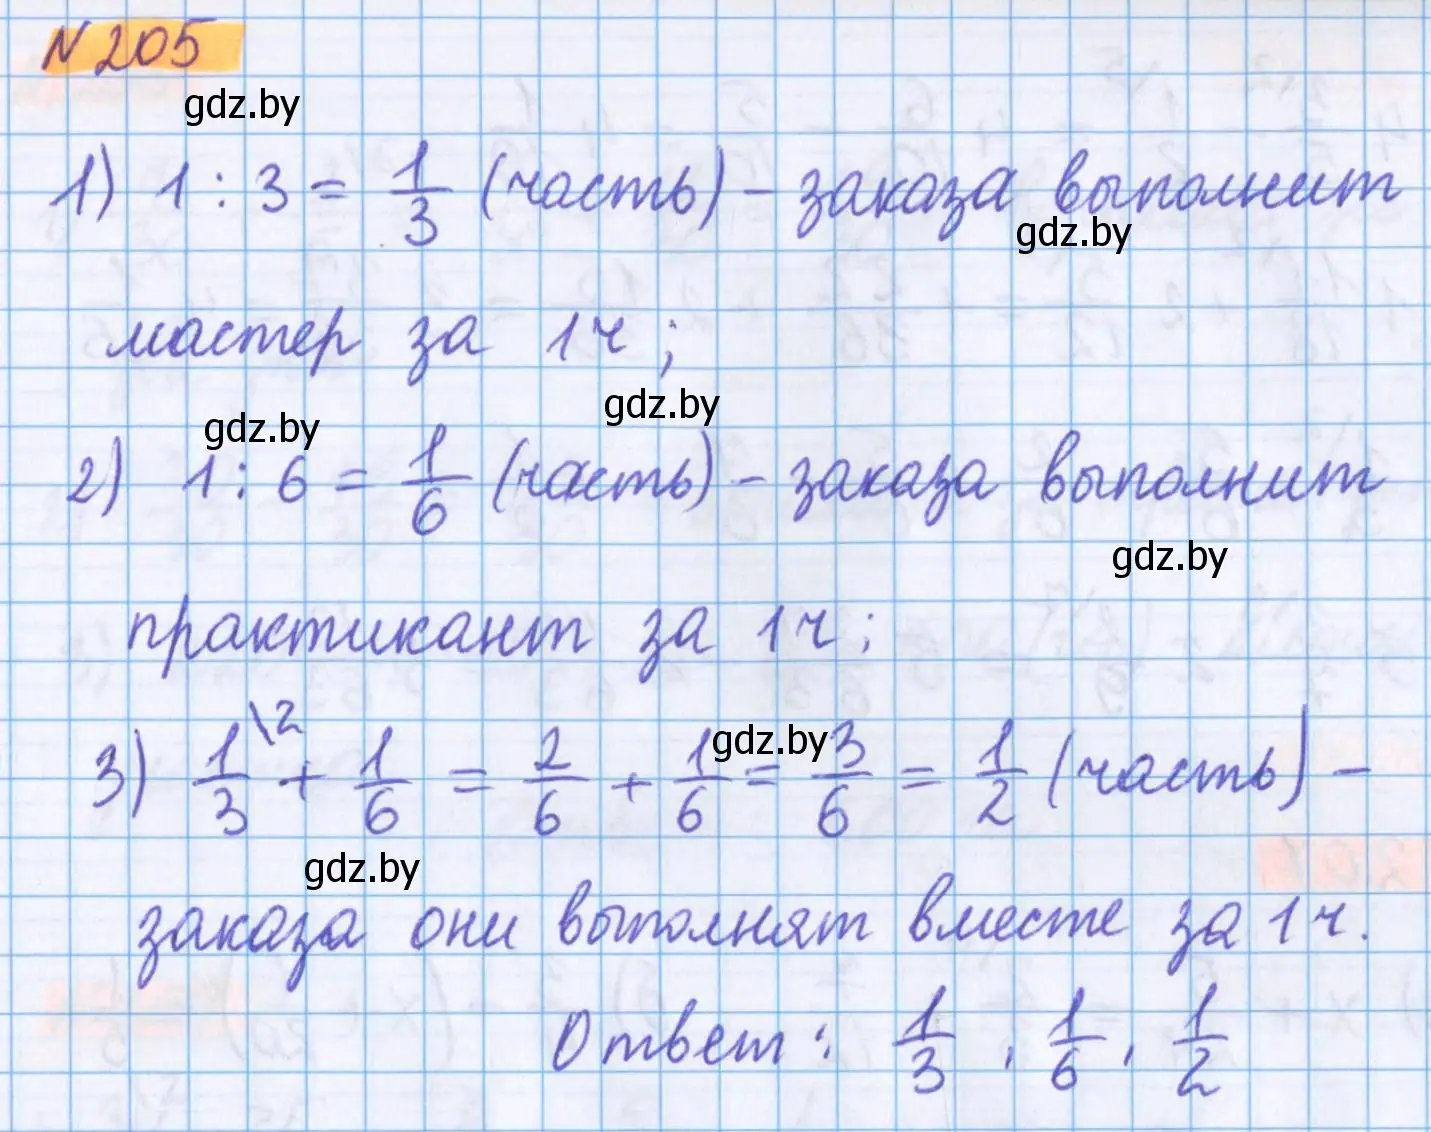 N 205
gdz.by
1) 1 : 3 = 1/3 (часть) – заказа выполнит
gdz.by
мастер за 1ч;
gdz.by
gdz.by
2) 1 : 6 = 1/6 (часть) – заказа выполнит
gdz.by
практикант за 1ч;
3) 1/3 \2 + 1/6 = 2/6 + 1/6 = 3/6 = 1/2 (часть) –
gdz.by
gdz.by
заказа они выполнят вместе за 1ч.
Ответ: 1/3, 1/6, 1/2